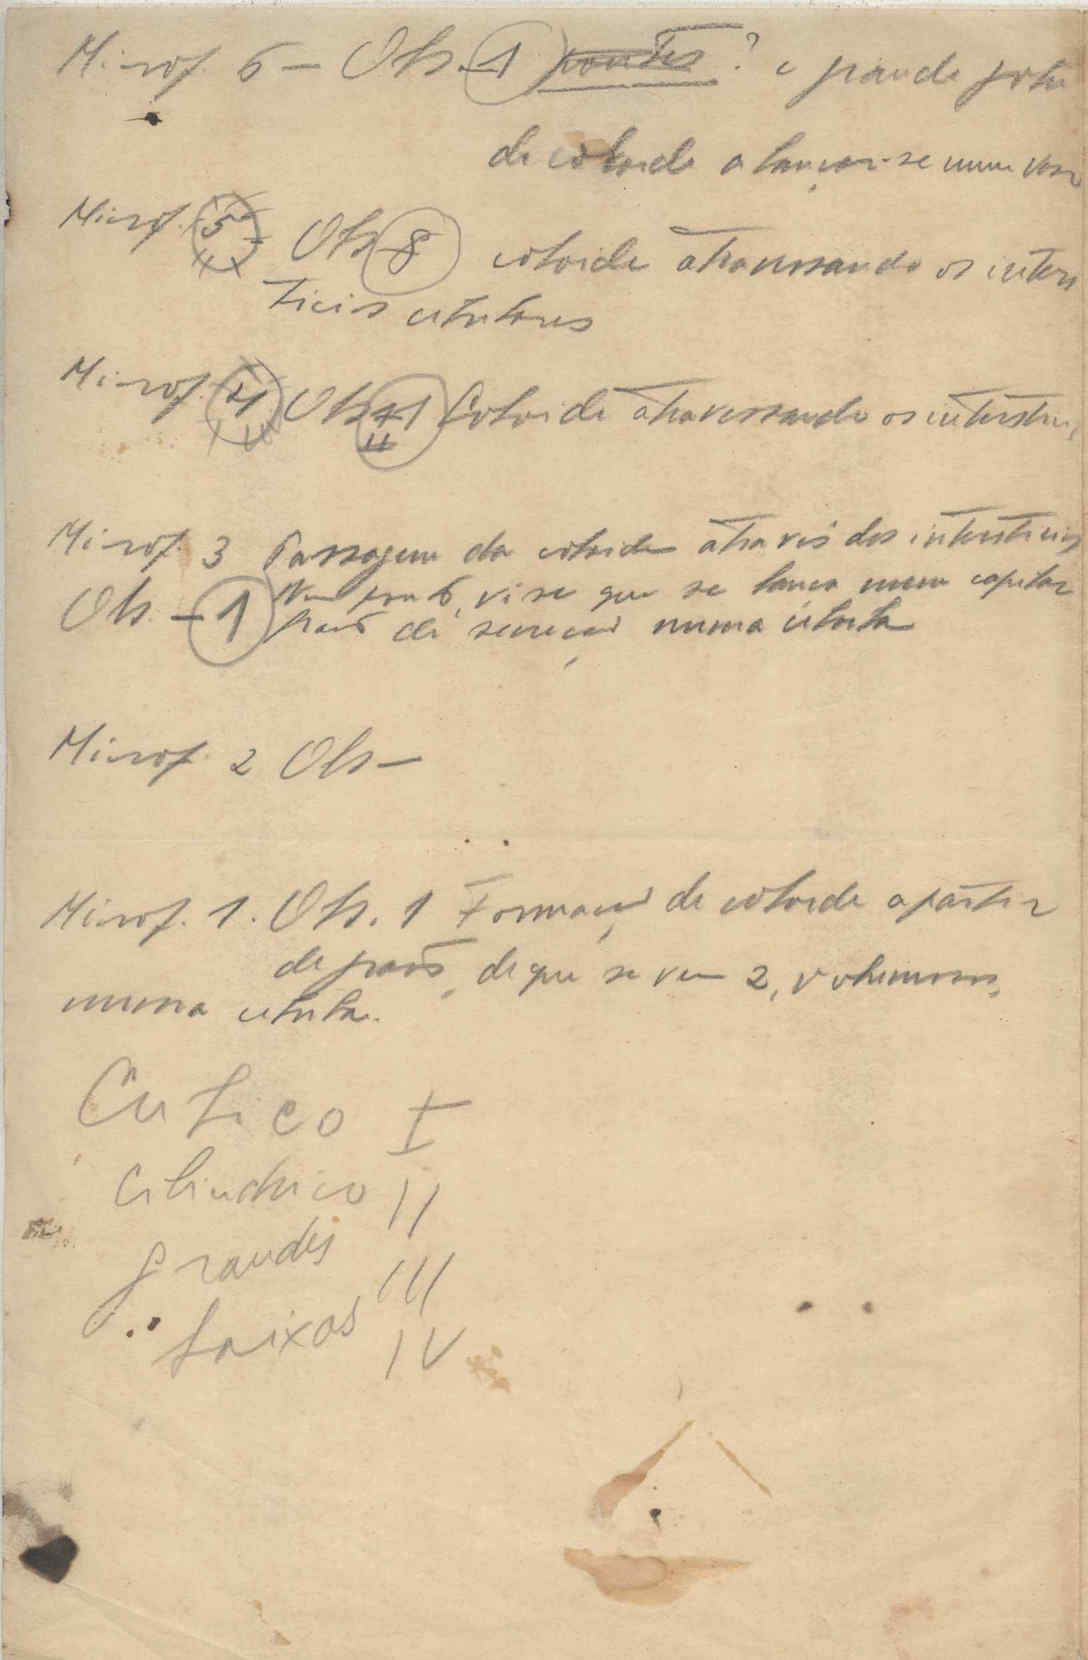 Microf. 6 — Obs. 1 pontes? e grande gota
de coloide a lançar-se num vaso
Microf. 5 - Obs 8 coloide atravessando os inters
ticios celulares
Microf. 4 Obs 1 Coloide atravessando os
Microf. 3 Passagem da coloide através dos intersticios
Num ponto, vê se que se lança num capilar
Obs. - 1 grãos de secreção numa célula
Microf. 2 Obs —
Microf. 1. Obs. 1 Formação de coloide a partir
de grãos, de que se vem 2, volumosos,
numa celula.
Cubico I
Cilindrico II
grandes III
baixos IV